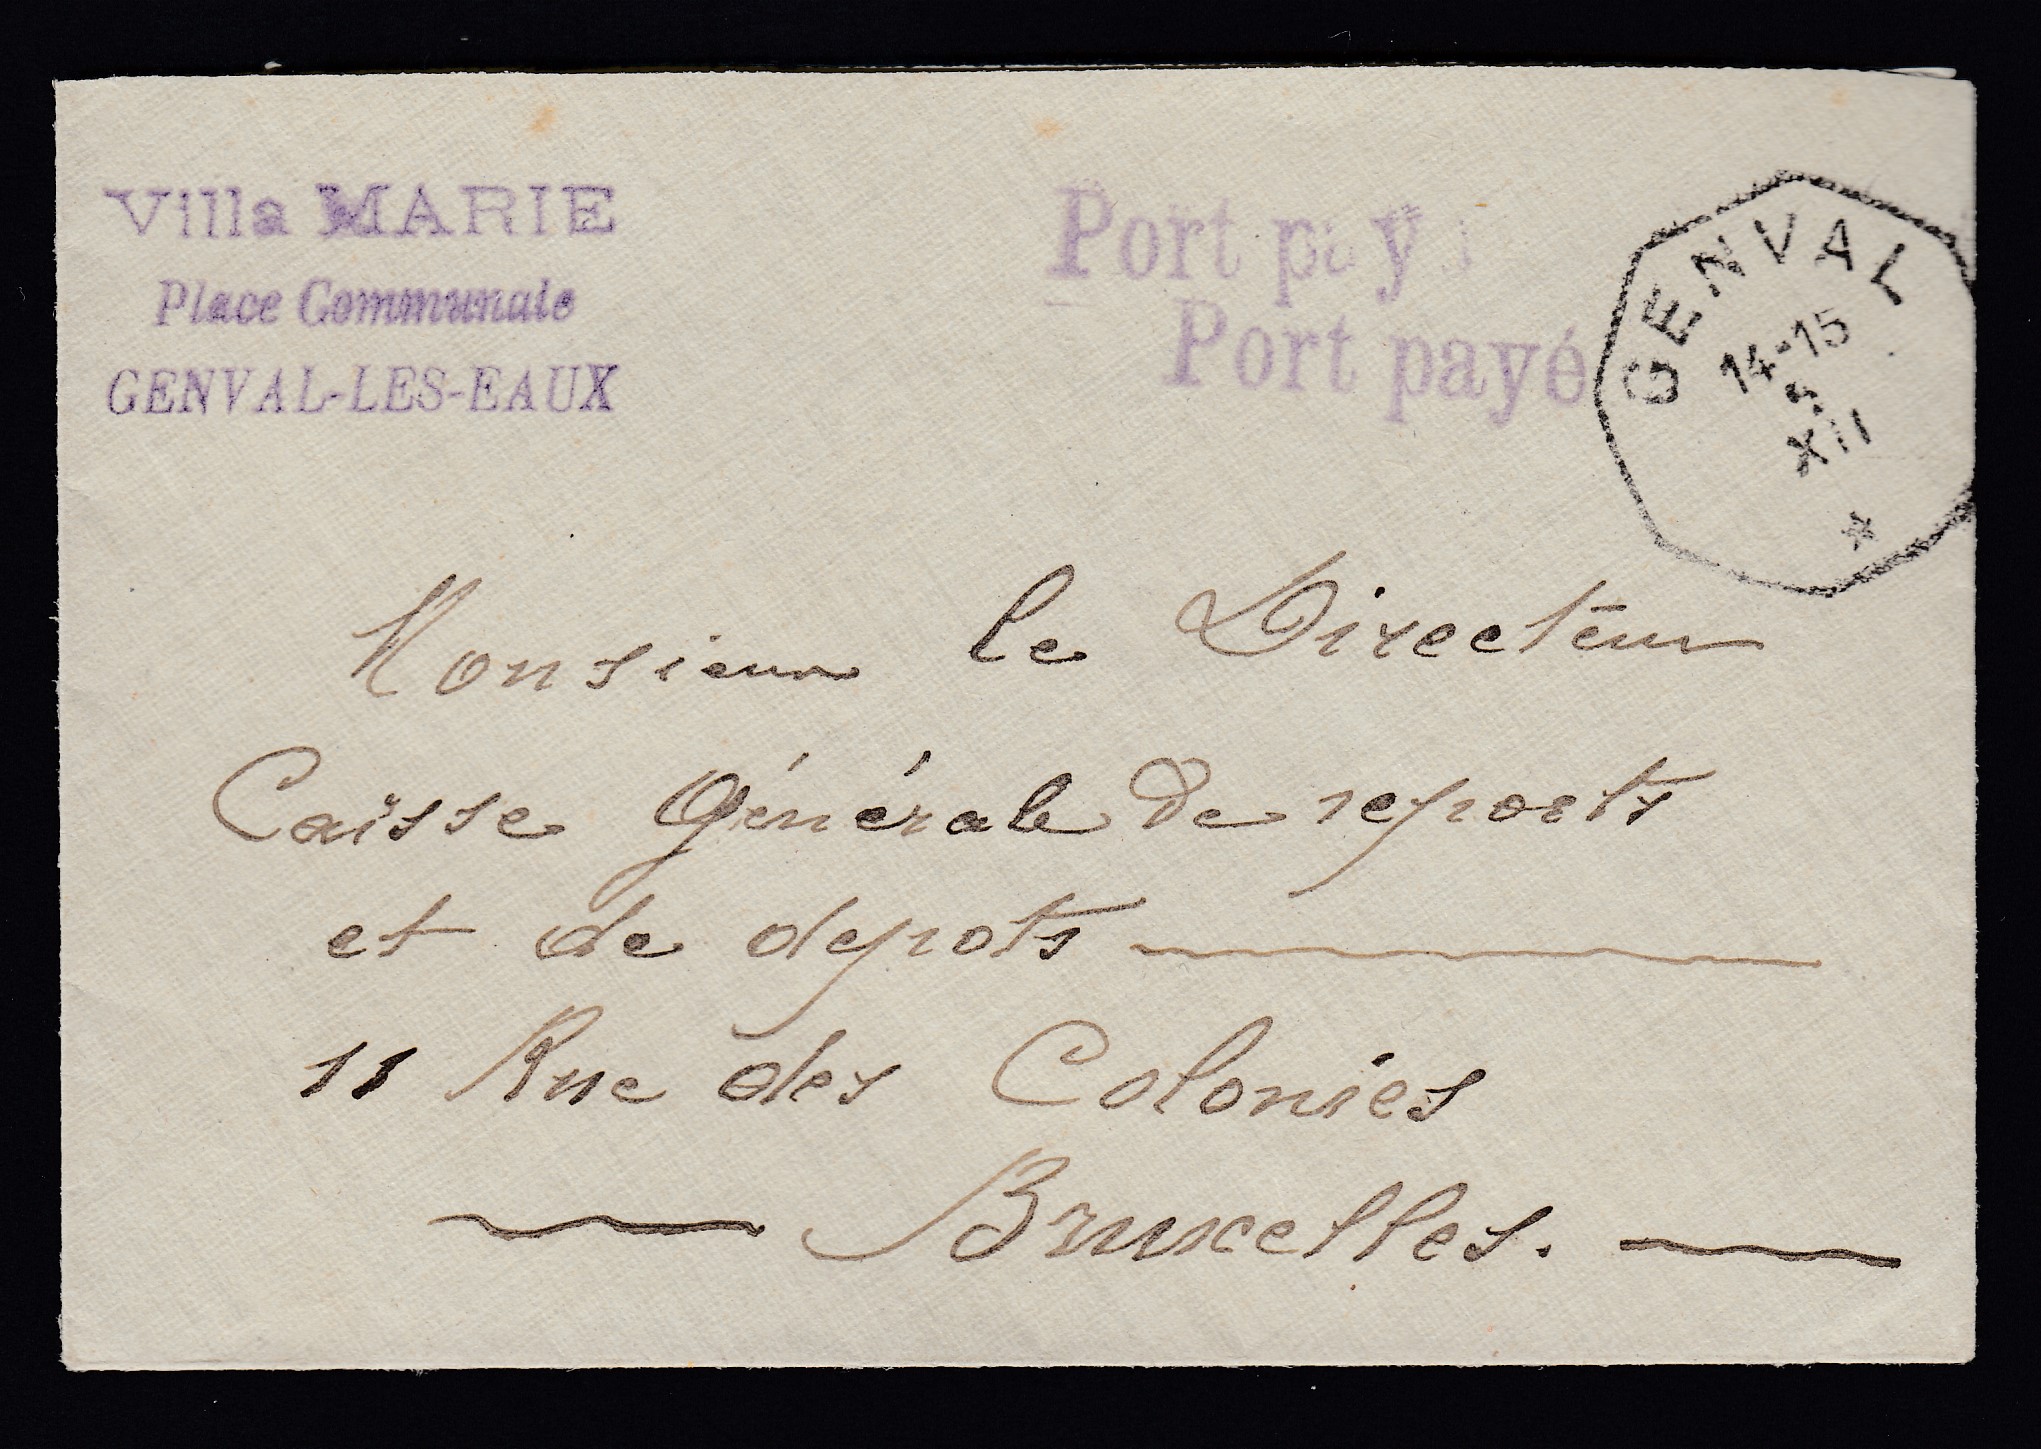 Villa MARIE
Place Communale
GENVAL-LES-EAUX
Port pay
Port payé
GENVAL
14-15
XII
*
Monsieur le Directeur
Caisse Générale de reports
et de depots
11 Rue des Colonies
Bruxelles.